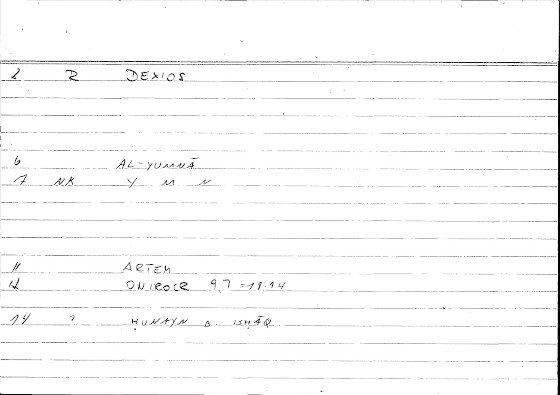 2 R DEXIOS
6 AL-YUMNĀ
7 NK Y M N
11 ARTEM
12 ONIROCR 9,7 = 19.14
14 ? ḤUNAYN B. ISḤĀQ